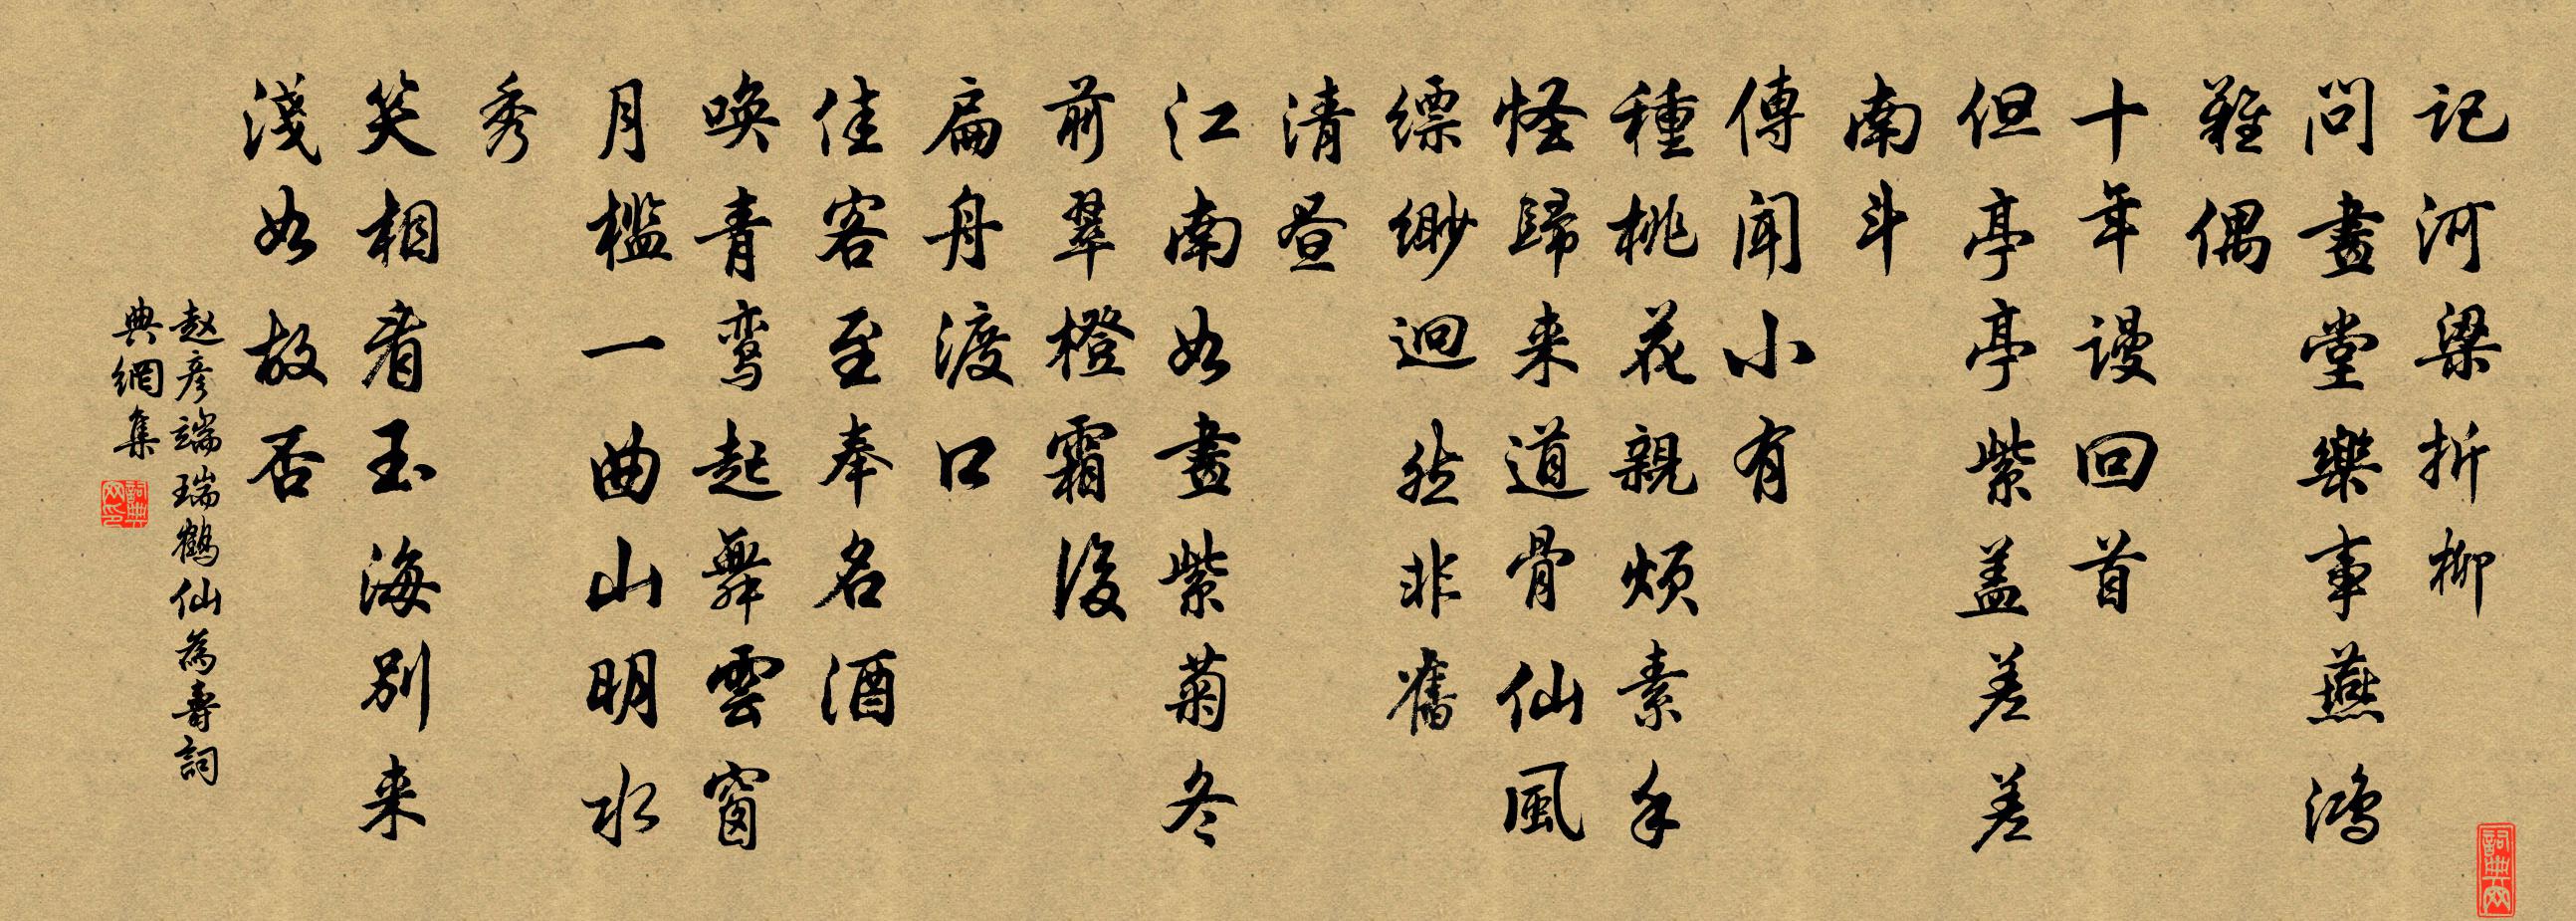 记河梁折柳
问畫堂樂事燕鴻
難偶
十年謾回首
但亭亭紫盖差差
南斗
傳闻小有
種桃花親煩素手
怪歸来道骨仙風
缥缈迥然非舊
清昼
江南如畫紫菊冬
前翠橙霜後
扁舟渡口
佳客至奉名酒
唤青鸾起舞雲窗
月槛一曲山明水
秀
笑相看玉海别来
淺如故否
赵彦端瑞鶴仙為壽詞
典網集
詞典网
詞典网印